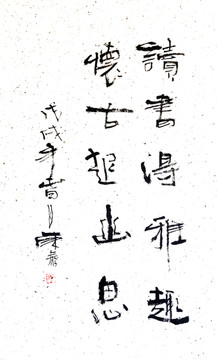 讀書得雅趣
懷古起幽思
戊戌年